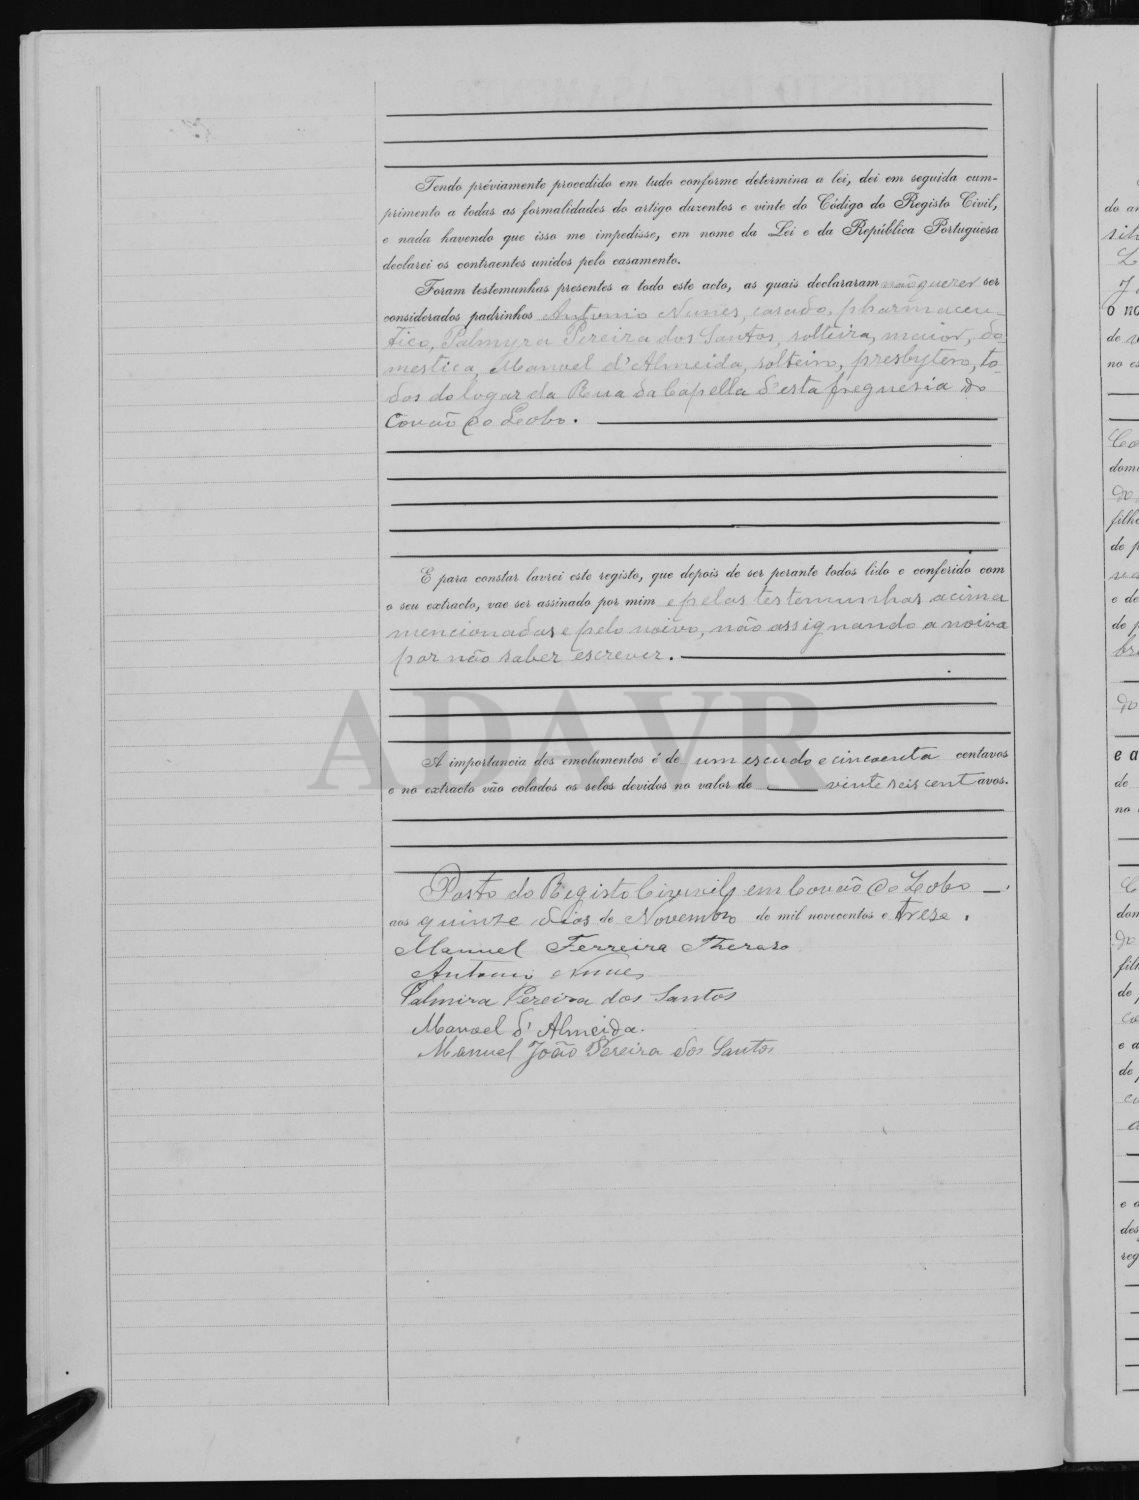 Tendo préviamente procedido em tudo conforme determina a lei, dei em seguida cum-
primento a todas as formalidades do artigo duzentos e vinte do Código do Registo Civil,
e nada havendo que isso me impedisse, em nome da Lei e da República Portuguesa
declarei os contraentes unidos pelo casamento.
Foram testemunhas presentes a todo este acto, as quais declararam não querer ser
considerados padrinhos Antonio Nunes, casado, pharmaceu-
tico, Palmyra Pereira dos Santos, solteira, maior, do-
mestica, Manoel d'Almeida, solteiro, presbytero, to-
dos do logar da Rua da Capella d'esta freguesia do
Covão do Lobo.
E para constar lavrei este registo, que depois de ser perante todos lido e conferido com
o seu extracto, vae ser assinado por mim e pelas testemunhas acima
mencionadas e pelo noivo, não assignando a noiva
por não saber escrever.
ADAVR
A importancia dos emolumentos é de um escudo e cincoenta centavos
e no extracto vão colados os selos devidos no valor de vinte seis centavos.
Posto do Registo Civil em Covão do Lobo
aos quinze dias de Novembro de mil novecentos e trese.
Manuel Ferreira
Antonio Nunes
Palmira Pereira dos Santos
Manoel d'Almeida.
Manuel João Pereira dos Santos